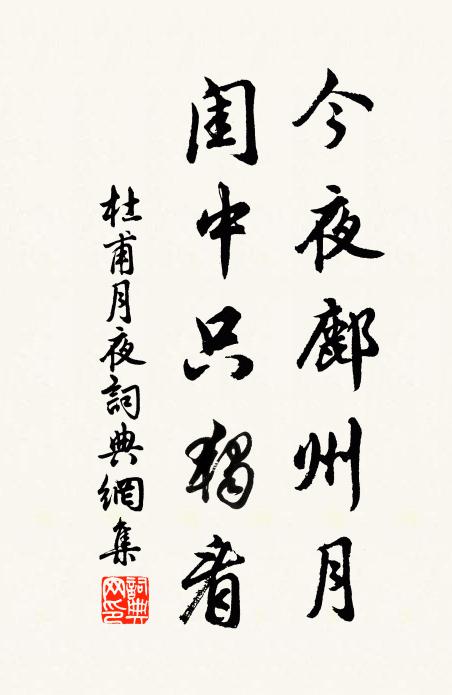 今夜鄜州月
闺中只獨看
杜甫月夜詞典網集
詞典网印